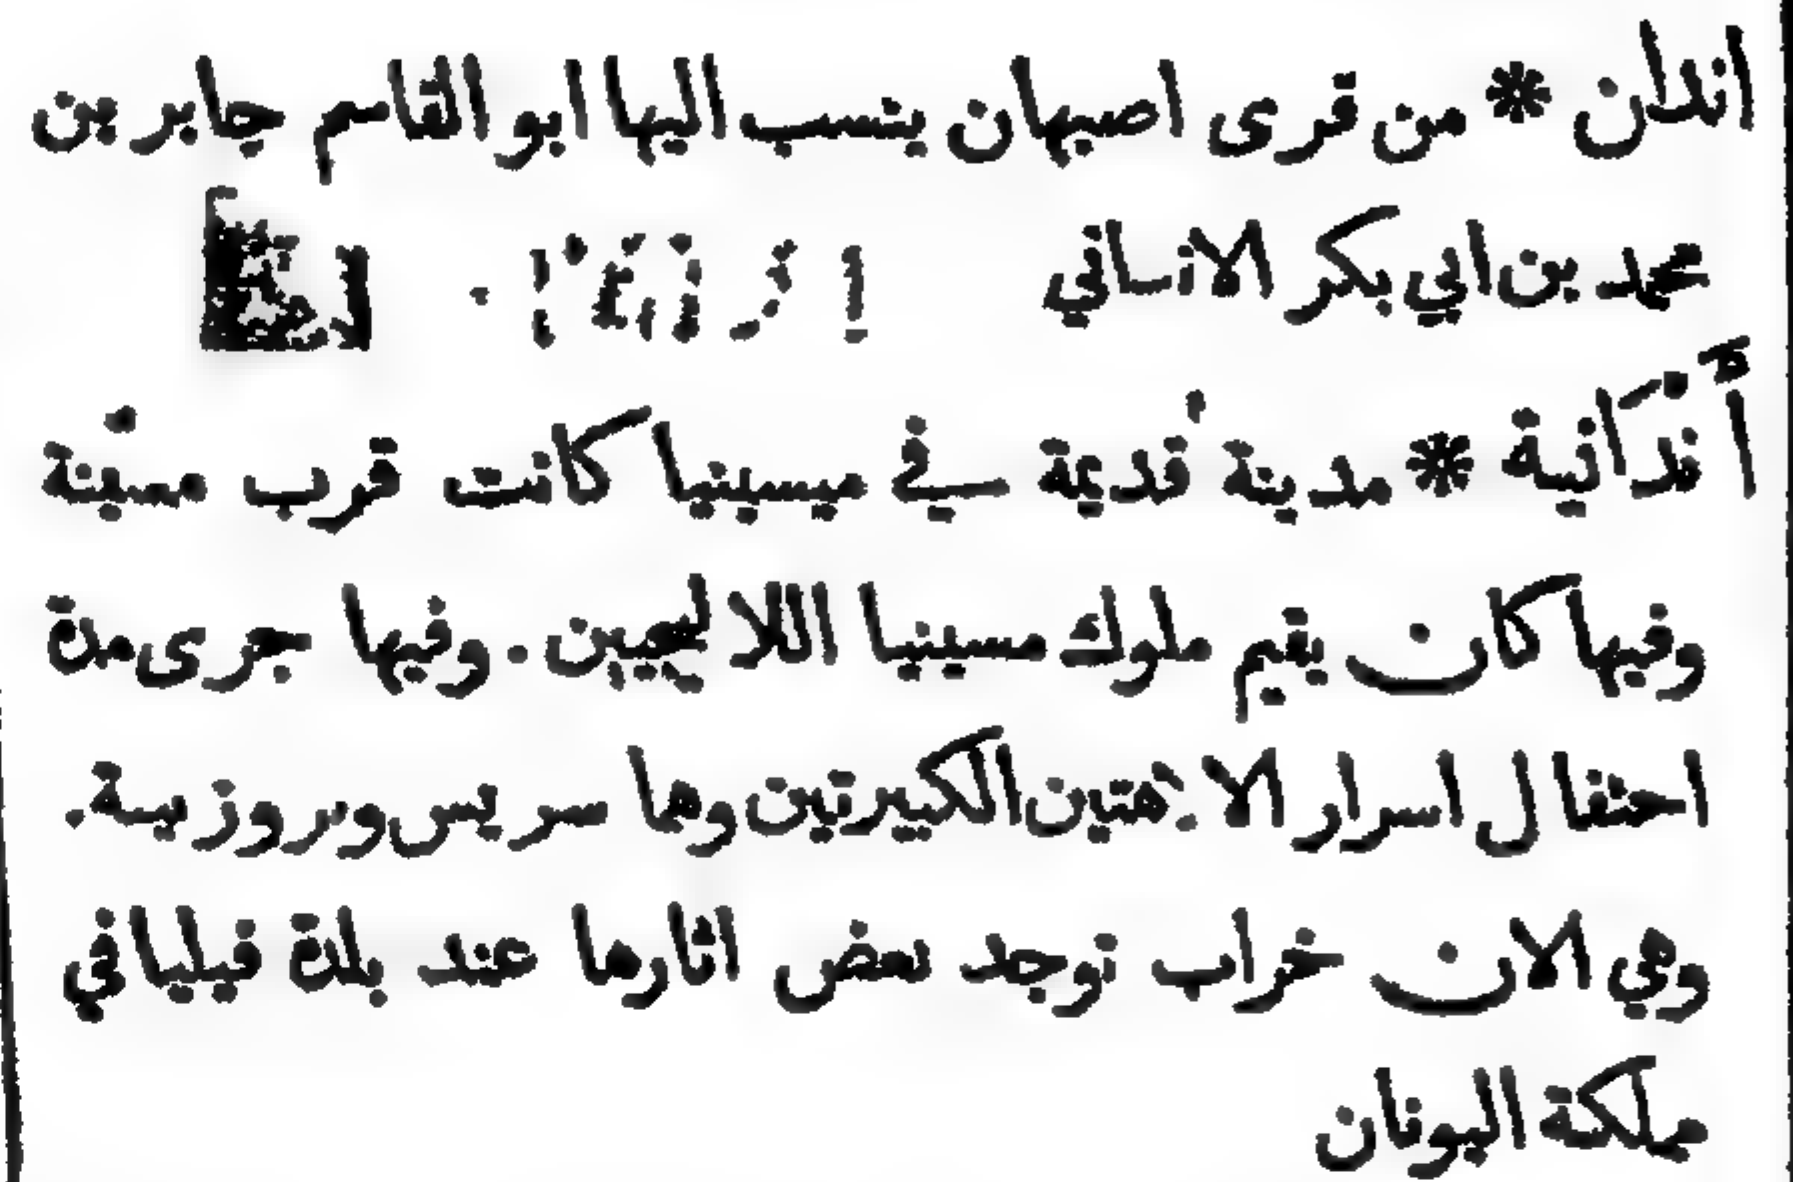 اندان * من قرى اصبهان ينسب اليها ابو القاسم جابر بن
محمد بن ابي بكر الانساني
أَنْدَانية * مدينة قديمة في ميسينيا كانت قرب مسينة
وفيها كان يقيم ملوك مسينيا اللاليجيين . وفيها جرى مدة
احتفال اسرار الالاهتين الكبيرتين وها سريس وبروزبينة .
وهي الان خراب توجد بعض اثارها عند بلدة فيليا في
مملكة اليونان